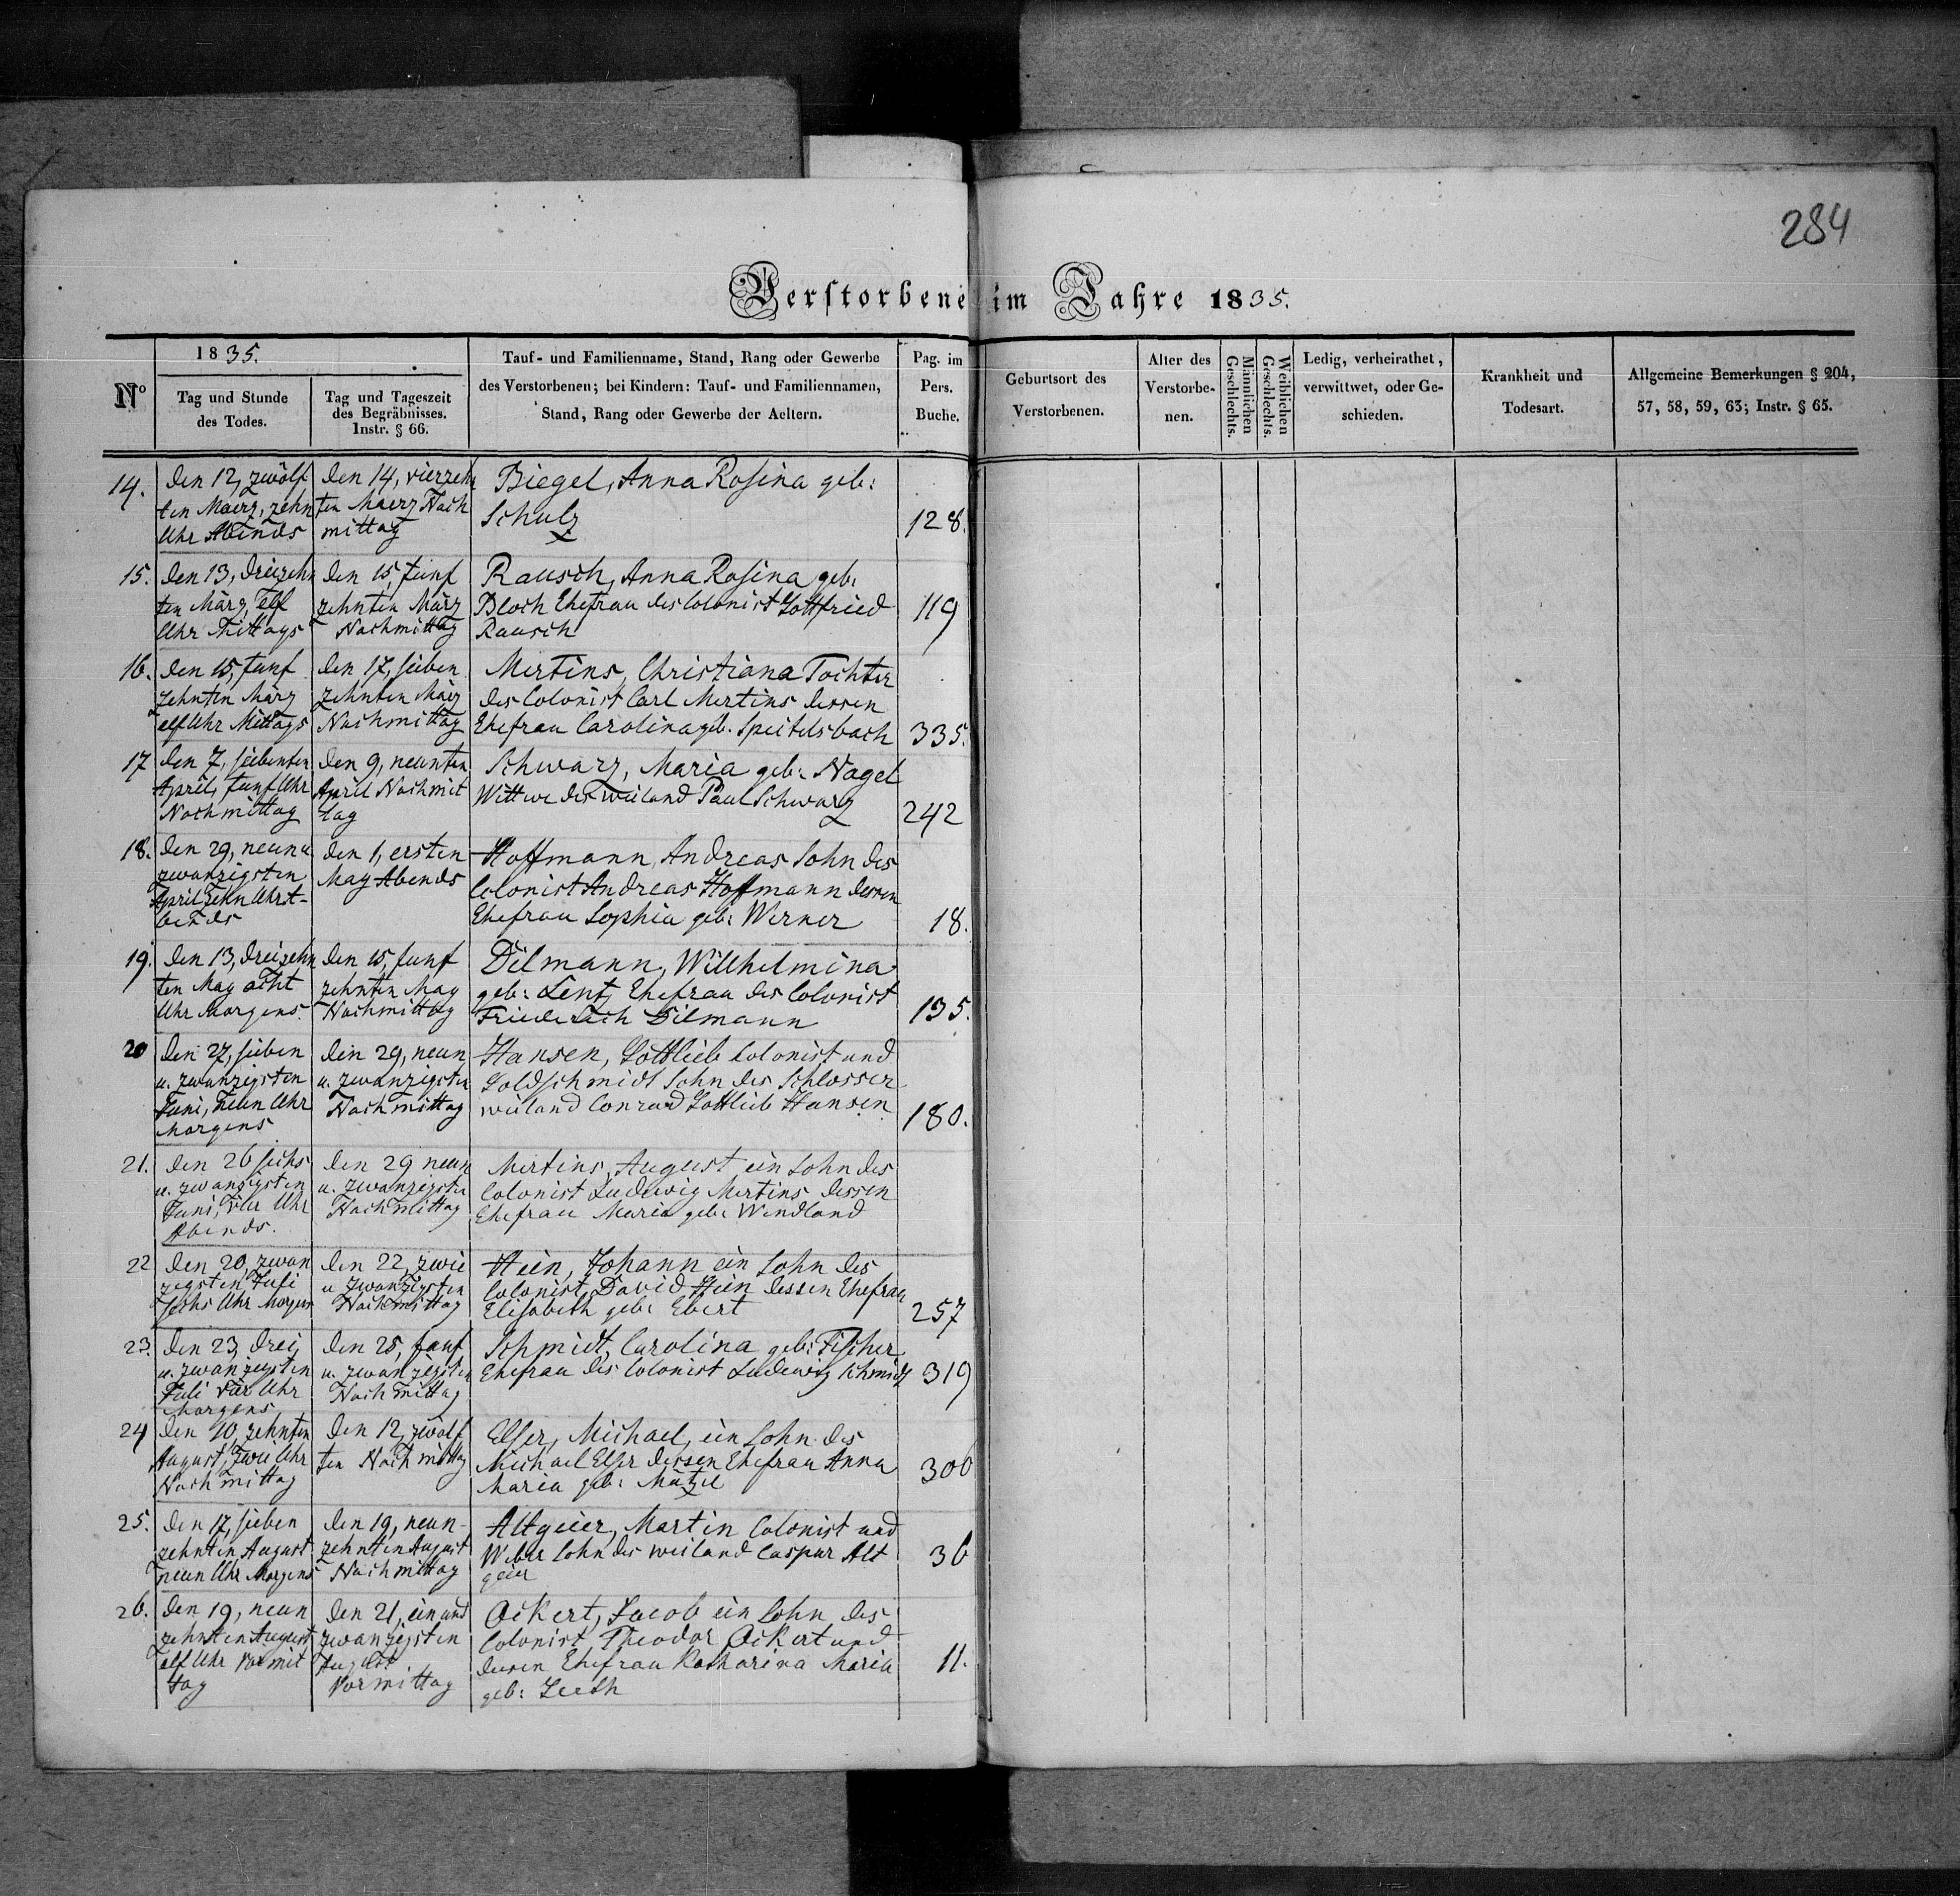 284
Verstorbene im Jahre 1835.
No
1835.
Tag und Stunde
des Todes.
Tag und Tageszeit
des Begräbnisses.
Instr. § 66.
Tauf- und Familienname, Stand, Rang oder Gewerbe
des Verstorbenen; bei Kindern: Tauf- und Familiennamen,
Stand, Rang oder Gewerbe der Aeltern.
Pag. im
Pers.
Buche.
Geburtsort des
Verstorbenen.
Alter des
Verstorbe-
nen.
Männlichen
Geschlechts.
Weiblichen
Geschlechts.
Ledig, verheirathet,
verwittwet, oder Ge-
schieden.
Krankheit und
Todesart.
Allgemeine Bemerkungen § 204,
57, 58, 59, 63; Instr. § 65.
14.
den 12, zwölf
ten Maerz, zehn
Uhr Abends
den 14, vierzehn
ten Maerz Nach
mittag
Biegel, Anna Rosina geb:
Schulz
128.
15.
den 13, dreizehn
ten März, Elf
Uhr Mittags
den 15, funf
zehnten März
Nachmittag
Rausch, Anna Rosina geb:
Bloch Ehefrau des Colonist Gottfried
Rausch
119
16.
den 15, funf
zehnten März
elf Uhr Mittags
den 17, sieben
zehnten März
Nachmittag
Mertins, Christiana Tochter
des Colonist Carl Mertins dessen
Ehefrau Carolina geb. Speitelsbach
335.
17
den 7, siebenten
April, funf Uhr
Nachmittag
den 9, neunten
April Nachmit
tag
Schwarz, Maria geb: Nagel
Wittwe des weiland Paul Schwarz
242
18.
den 29, neun u
zwanzigsten
April Zehn Uhr A-
bends
den 1, ersten
May Abends
Hoffmann, Andreas Sohn des
Colonist Andreas Hoffmann dessen
Ehefrau Sophia geb: Werner
18.
19.
den 13, dreizehn
ten May acht
Uhr Morgens.
den 15, funf
zehnten May
Nachmittag
Dilmann, Willhelmina
geb: Lentz Ehefrau des Colonist
Friederich Dilmann
135.
20
den 27, sieben
u. zwanzigsten
Juni, Neun Uhr
Morgens
den 29, neun
u. zwanzigsten
Nachmittag
Hansen, Gottlieb Colonist und
Goldschmidt Sohn des Schlosser
weiland Conrad Gottlieb Hansen
180.
21.
den 26 sechs
u. zwanzigsten
Juni, Vier Uhr
Abends.
den 29 neun
u. zwanzigsten
Nachmittag
Mertins, August ein Sohn des
Colonist Ludewig Mertins dessen
Ehefrau Maria geb: Wendland
22
den 20, zwan
zigsten Juli
Sechs Uhr Morgens
den 22, zwei
u zwanzigsten
Nachmittag
Hein, Johann ein Sohn des
Colonist David Hein dessen Ehefrau
Elisabeth geb: Ebert
257
23.
den 23, drei
u. zwanzigsten
Juli Vier Uhr
Morgens
den 25, funf
u. zwanzigsten
Nachmittag
Schmidt, Carolina geb: Fischer
Ehefrau des Colonist Ludewig Schmidt
319
24
den 10, zehnten
August, Zwei Uhr
Nachmittag
den 12, zwölf
ten Nachmittag
Elser, Michael, ein Sohn des
Michael Elser dessen Ehefrau Anna
Maria geb: Mätzel
306
25.
den 17, sieben
zehnten August
neun Uhr Morgens
den 19, neun-
zehnten August
Nachmittag
Altgeier, Martin Colonist und
Weber Sohn des weiland Caspar Alt
geier
36
26.
den 19, neun
zehnten August
elf Uhr Vormit
tag
den 21, ein und
zwanzigsten
August
Vormittag
Ackert, Jacob ein Sohn des
Colonist Theodor Ackert und
dessen Ehefrau Katharina Maria
geb:
11.